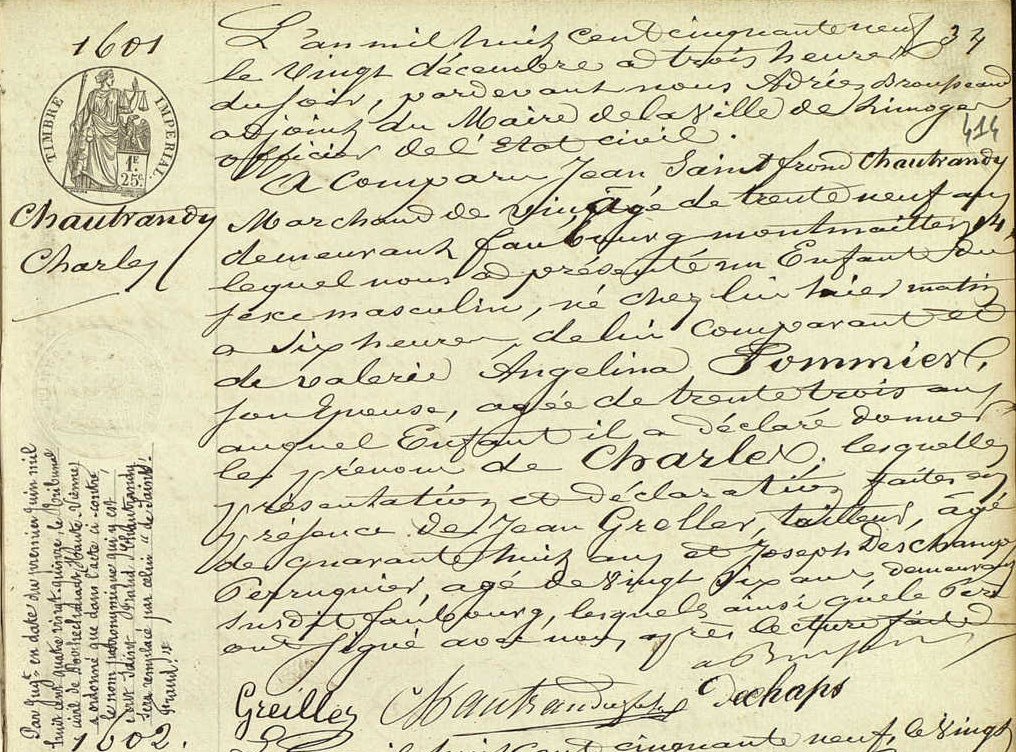 1601
TIMBRE IMPERIAL
1F.
25c.
Chautrandy
Charles
L'an mil huit cent cinquante neuf 34
le vingt décembre a trois heures
du soir, pardevant nous Adrien Brousseaud
adjoint du Maire de la Ville de Limoges
414
officier de l'Etat civil.
A Comparu Jean Saint frond Chautrandy
Marchand de vin, âgé de trente neuf ans
demeurant faubourg montmailler,
lequel nous a présenté un Enfant du
sexe masculin, né chez lui hier matin
a Six heures, de lui Comparant et
de valerie Angelina Pommier,
son Epouse, agée de trente trois ans
auquel Enfant il a déclaré donner
le prénom de Charles. lesquelles
présentation et déclaration faites en
présence de Jean Greller, tailleur, âgé
de quarante huit ans et Joseph Deschamps
Perruquier, agé de vingt Six ans, demeurant
susdit faubourg, lesquels ainsi que le Père
ont signé avec nous, après lecture faite
Greillez Chautrandy Dechaps
Par Jugt en date du premier Juin mil
huit cent quatre vingt quinze, le Tribunal
civil de Rochechouart, (Haute-Vienne)
a ordonné que dans l'acte ci-contre
le nom patronymique qui y est
écrit Saint-Frond Chautrandy
sera remplacé par celui "de Saint-
Front".
1602.
mil huit cent cinquante neuf, le vingt